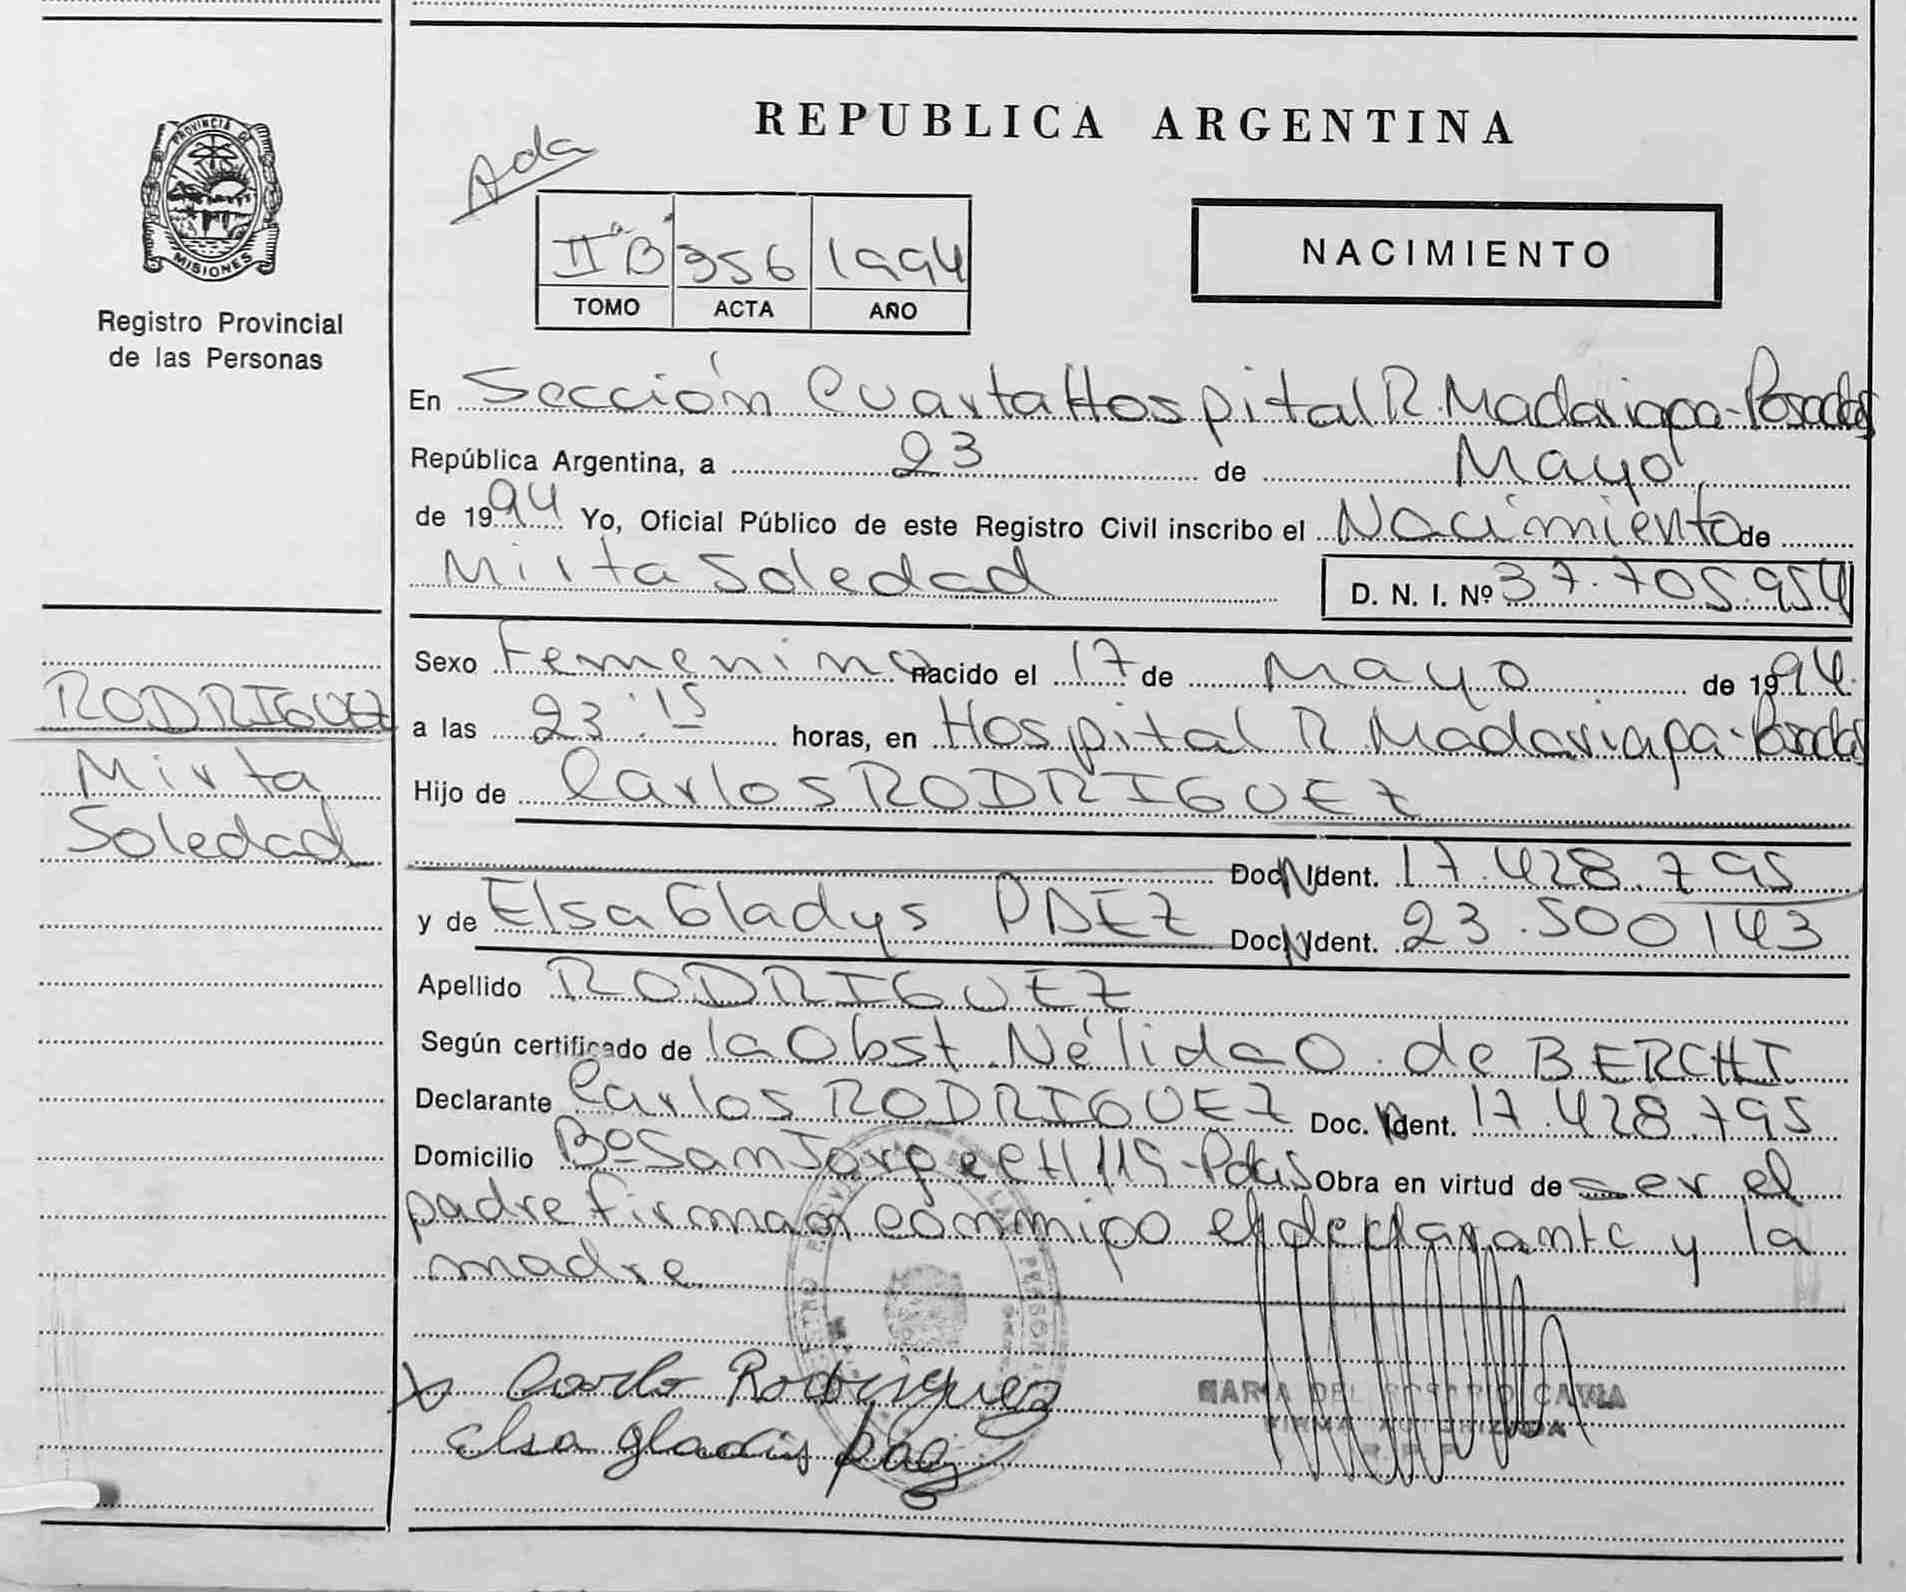 PROVINCIA DE
MISIONES
Registro Provincial
de las Personas
RODRIGUEZ
Mirta
Soledad
REPUBLICA ARGENTINA
Ada
IIªB 356 1994
TOMO ACTA AÑO
NACIMIENTO
En Sección Cuarta Hospital R. Madariaga-Posadas
República Argentina, a 23 de Mayo
de 1994 Yo, Oficial Público de este Registro Civil inscribo el Nacimiento de
Mirta Soledad D. N. I. Nº 37.705.954
Sexo Femenino nacido el 17 de Mayo de 1994.
a las 23:15 horas, en Hospital R. Madariaga-Posadas
Hijo de Carlos RODRIGUEZ
Doc. N Ident. 17.428.795
y de Elsa Gladys PAEZ Doc. N Ident. 23.500143
Apellido RODRIGUEZ
Según certificado de la Obst. Nélida O. de BERCHI
Declarante Carlos RODRIGUEZ Doc. Ident. 17.428.795
Domicilio Bº San Jorge CH 115-Pdas Obra en virtud de ser el
padre firman conmigo el declarante y la
madre
Carlo Rodriguez
Elsa gladis paez
MARIA DEL ROSARIO
FIRMA AUTORIZADA